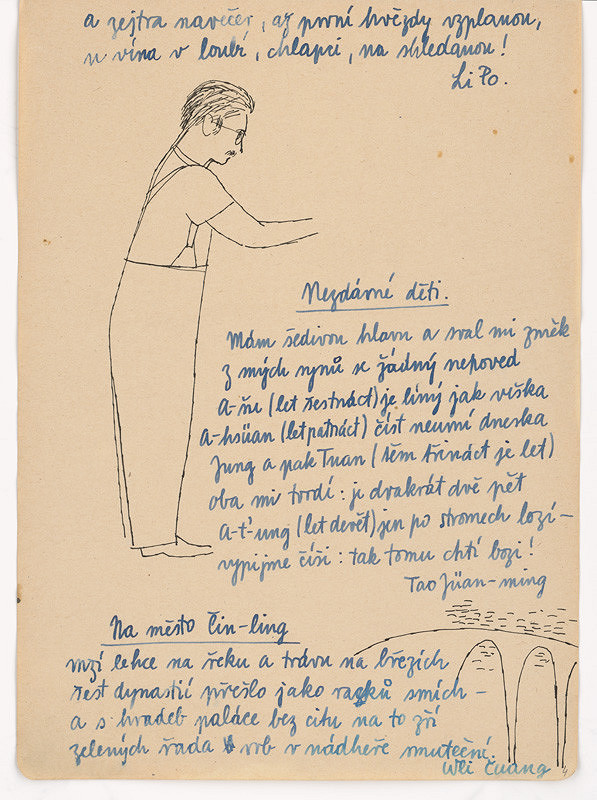 a zejtra navečer, až první hvězdy vzplanou,
u vína v loubí, chlapci, na shledanou!
Li Po.
Nezdárné děti.
Mám šedivou hlavu a sval mi změk
z mých synů se žádný nepoved
A-šu (let šestnáct) je líný jak viška
A-hsüan (let patnáct) číst neumí dneska
Jung a pak Tuan (těm třináct je let)
oba mi tvrdí: je dvakrát dvě pět
A-t'-ung (let devět) jen po stromech lozí –
vypijme číši: tak tomu chtí bozi!
Tao Jüan-ming
Na město Čin-ling
mží lehce na řeku a trávu na březích
šest dynastií přešlo jako ptáků smích –
a s hradeb paláce bez citu na to zří
zelených řada vrb v nádheře smuteční.
Wei Čuang
4